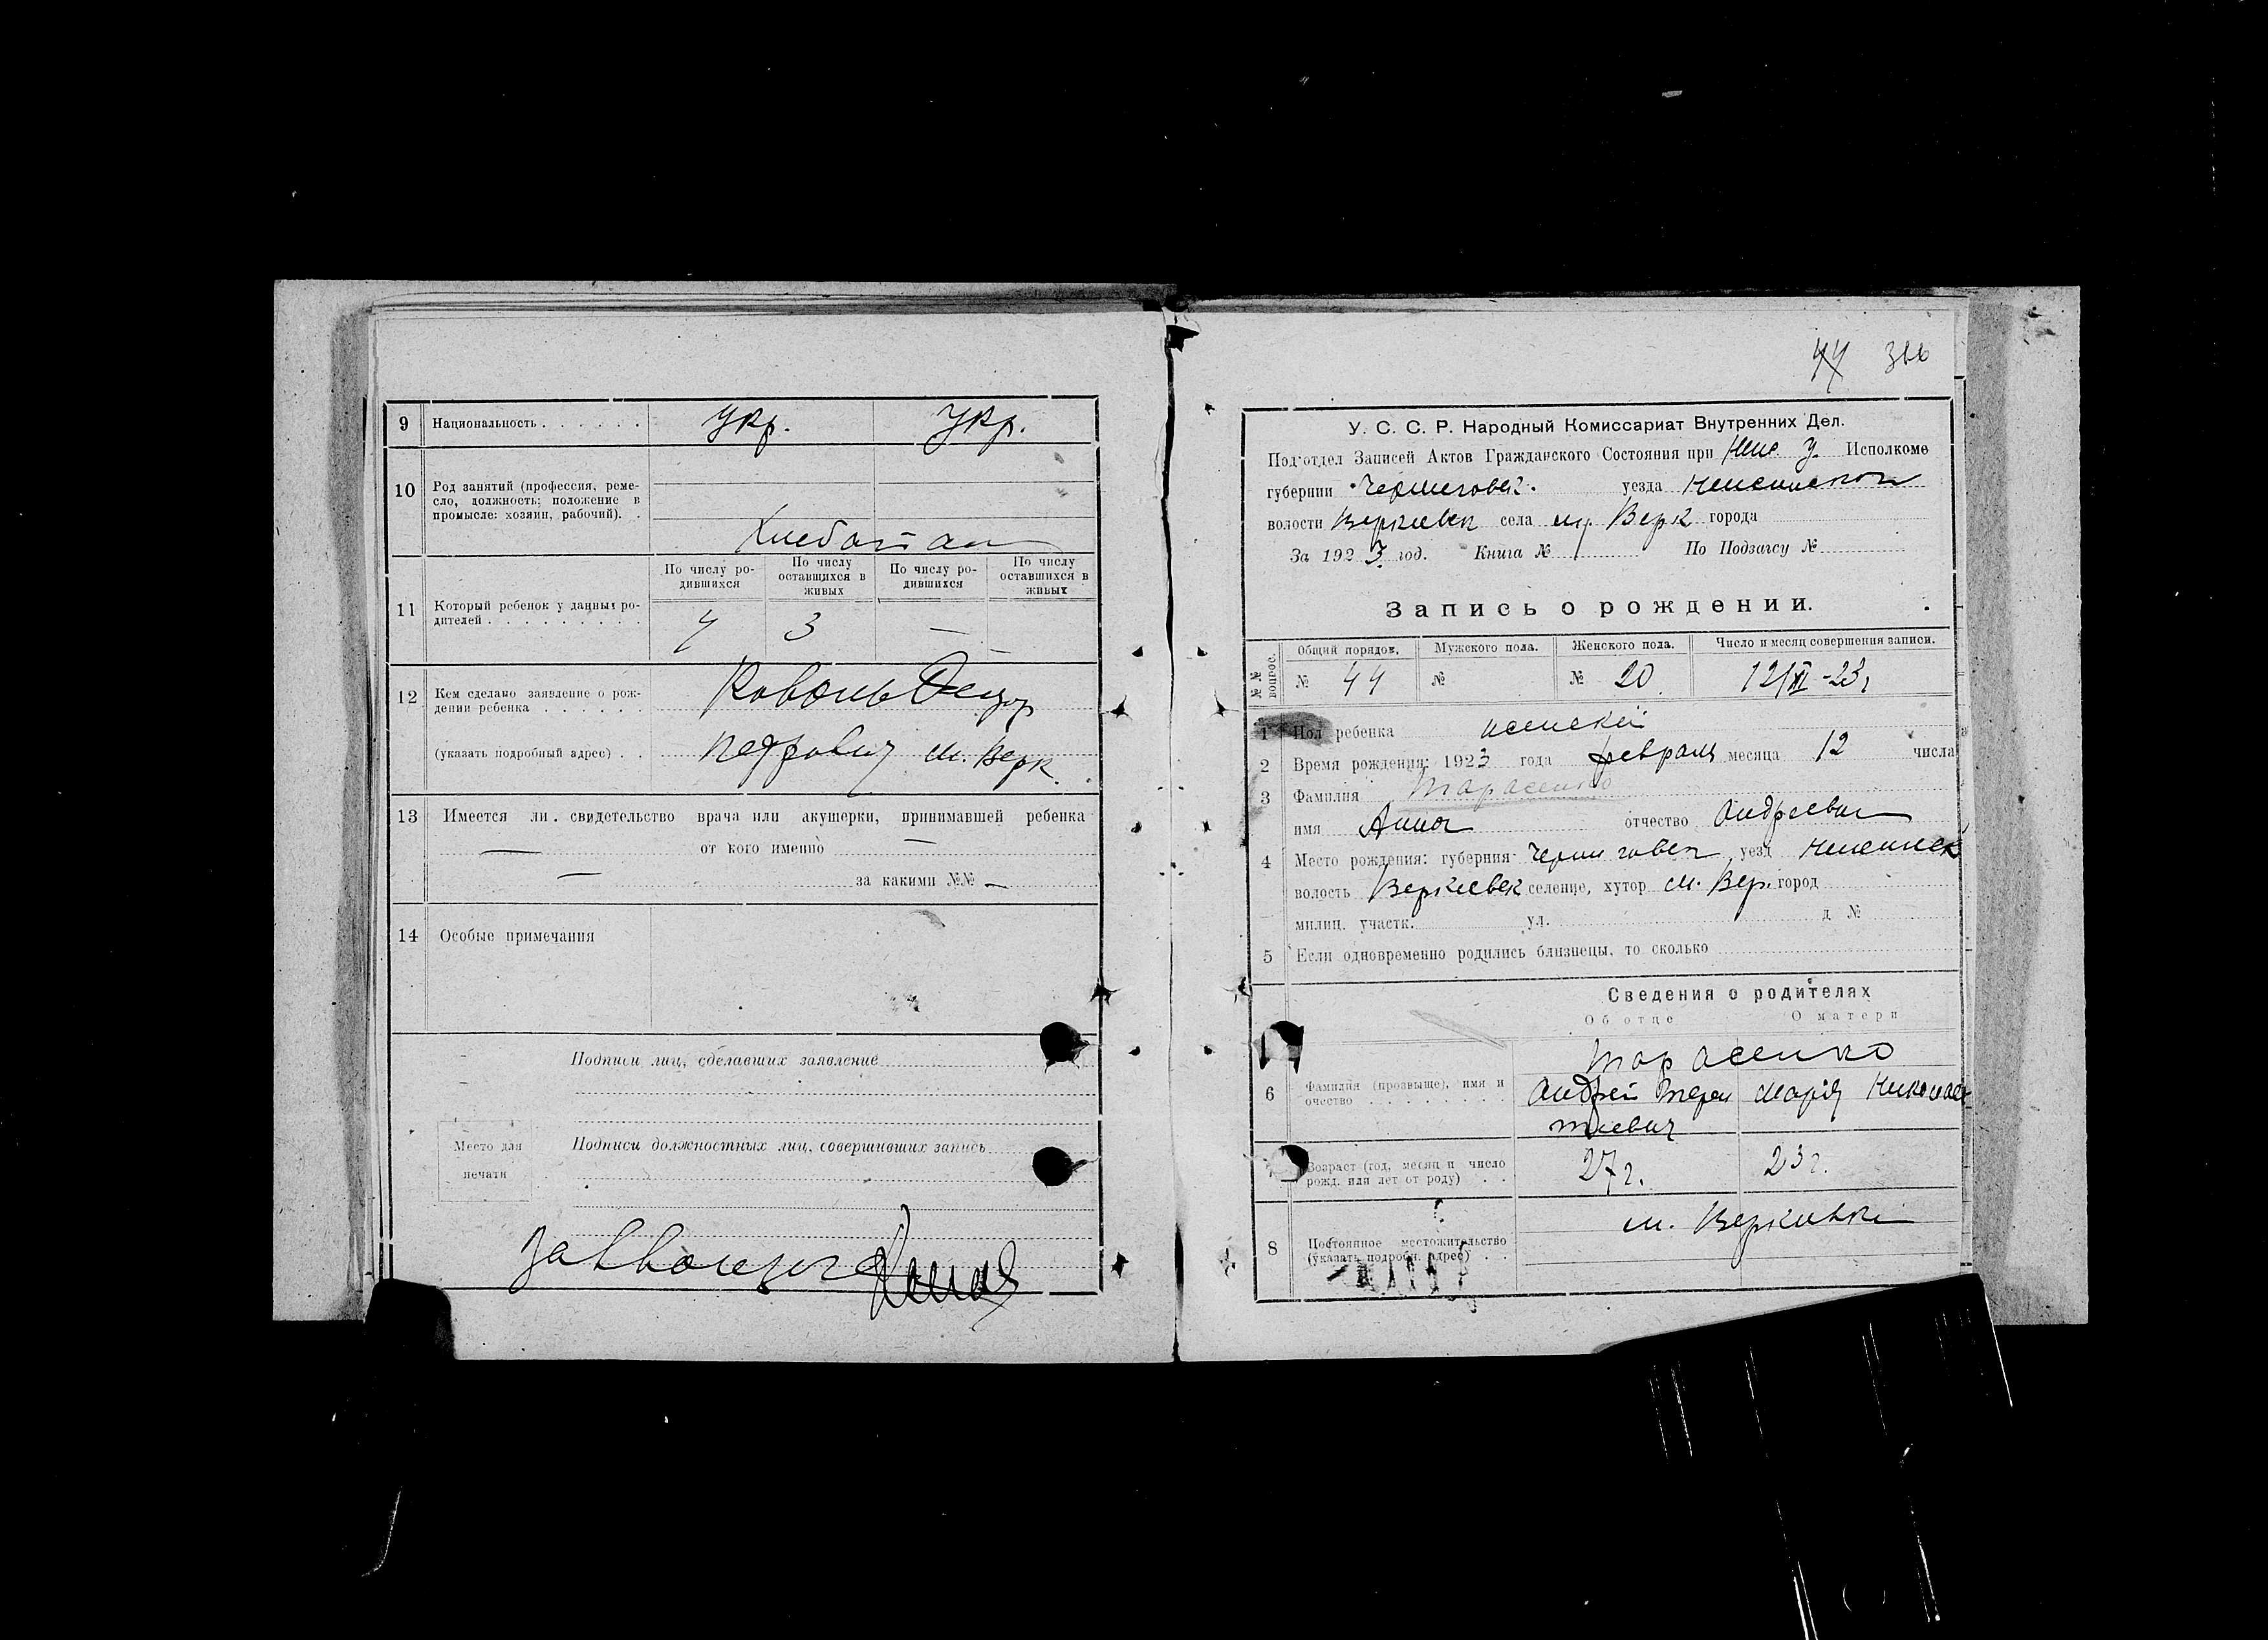 9 Национальность . . . . . . Укр. Укр.
10 Род занятий (профессия, реме-
сло, должность; положение в
промысле: хозяин, рабочий). .
Хлебопаш
11 Который ребенок у данных ро-
дителей . . . . . . . . .
По числу ро-
дившихся
По числу
оставшихся в
живых
По числу ро-
дившихся
По числу
оставшихся в
живых
4 3 — —
12 Кем сделано заявление о рож-
дении ребенка . . . . . .
(указать подробный адрес) . .
Коваль
Петрович м. Верк.
13 Имеется ли свидетельство врача или акушерки, принимавшей ребенка
— от кого именно —
— за какими №№ —
14 Особые примечания
Подписи лиц, сделавших заявление
Место для
печати
Подписи должностных лиц, совершивших запись
44 316
У. С. С. Р. Народный Комиссариат Внутренних Дел.
Подотдел Записей Актов Гражданского Состояния при Неж У. Исполкоме
губернии Черниговск. уезда Неженской
волости Веркиевск села м. Верк города
За 1923 год. Книга № По Подзагсу №
Запись о рождении.
№№ вопрос.
Общий порядок. Мужского пола. Женского пола. Число и месяц совершения записи.
№ 44 № № 20 12/II-23 г
1 Пол ребенка женский
2 Время рождения: 1923 года февраля месяца 12 числа
3 Фамилия Тарасенко
имя Анна отчество Андреевна
4 Место рождения: губерния Черниговск уезд Неженск
волость Веркиевск селение, хутор м. Вер. город
милиц. участк. ул. д №
5 Если одновременно родились близнецы, то сколько
Сведения о родителях
Об отце О матери
6 Фамилия (прозвище), имя и
очество . . . . . . . . .
Тарасенко
Андрей Терен Мария Николаев
тиевич
7 Возраст (год, месяц и число
рожд. или лет от роду) . .
27 г. 23 г.
8 Постоянное местожительство
(указать подробн. адрес) . .
м. Веркиевка